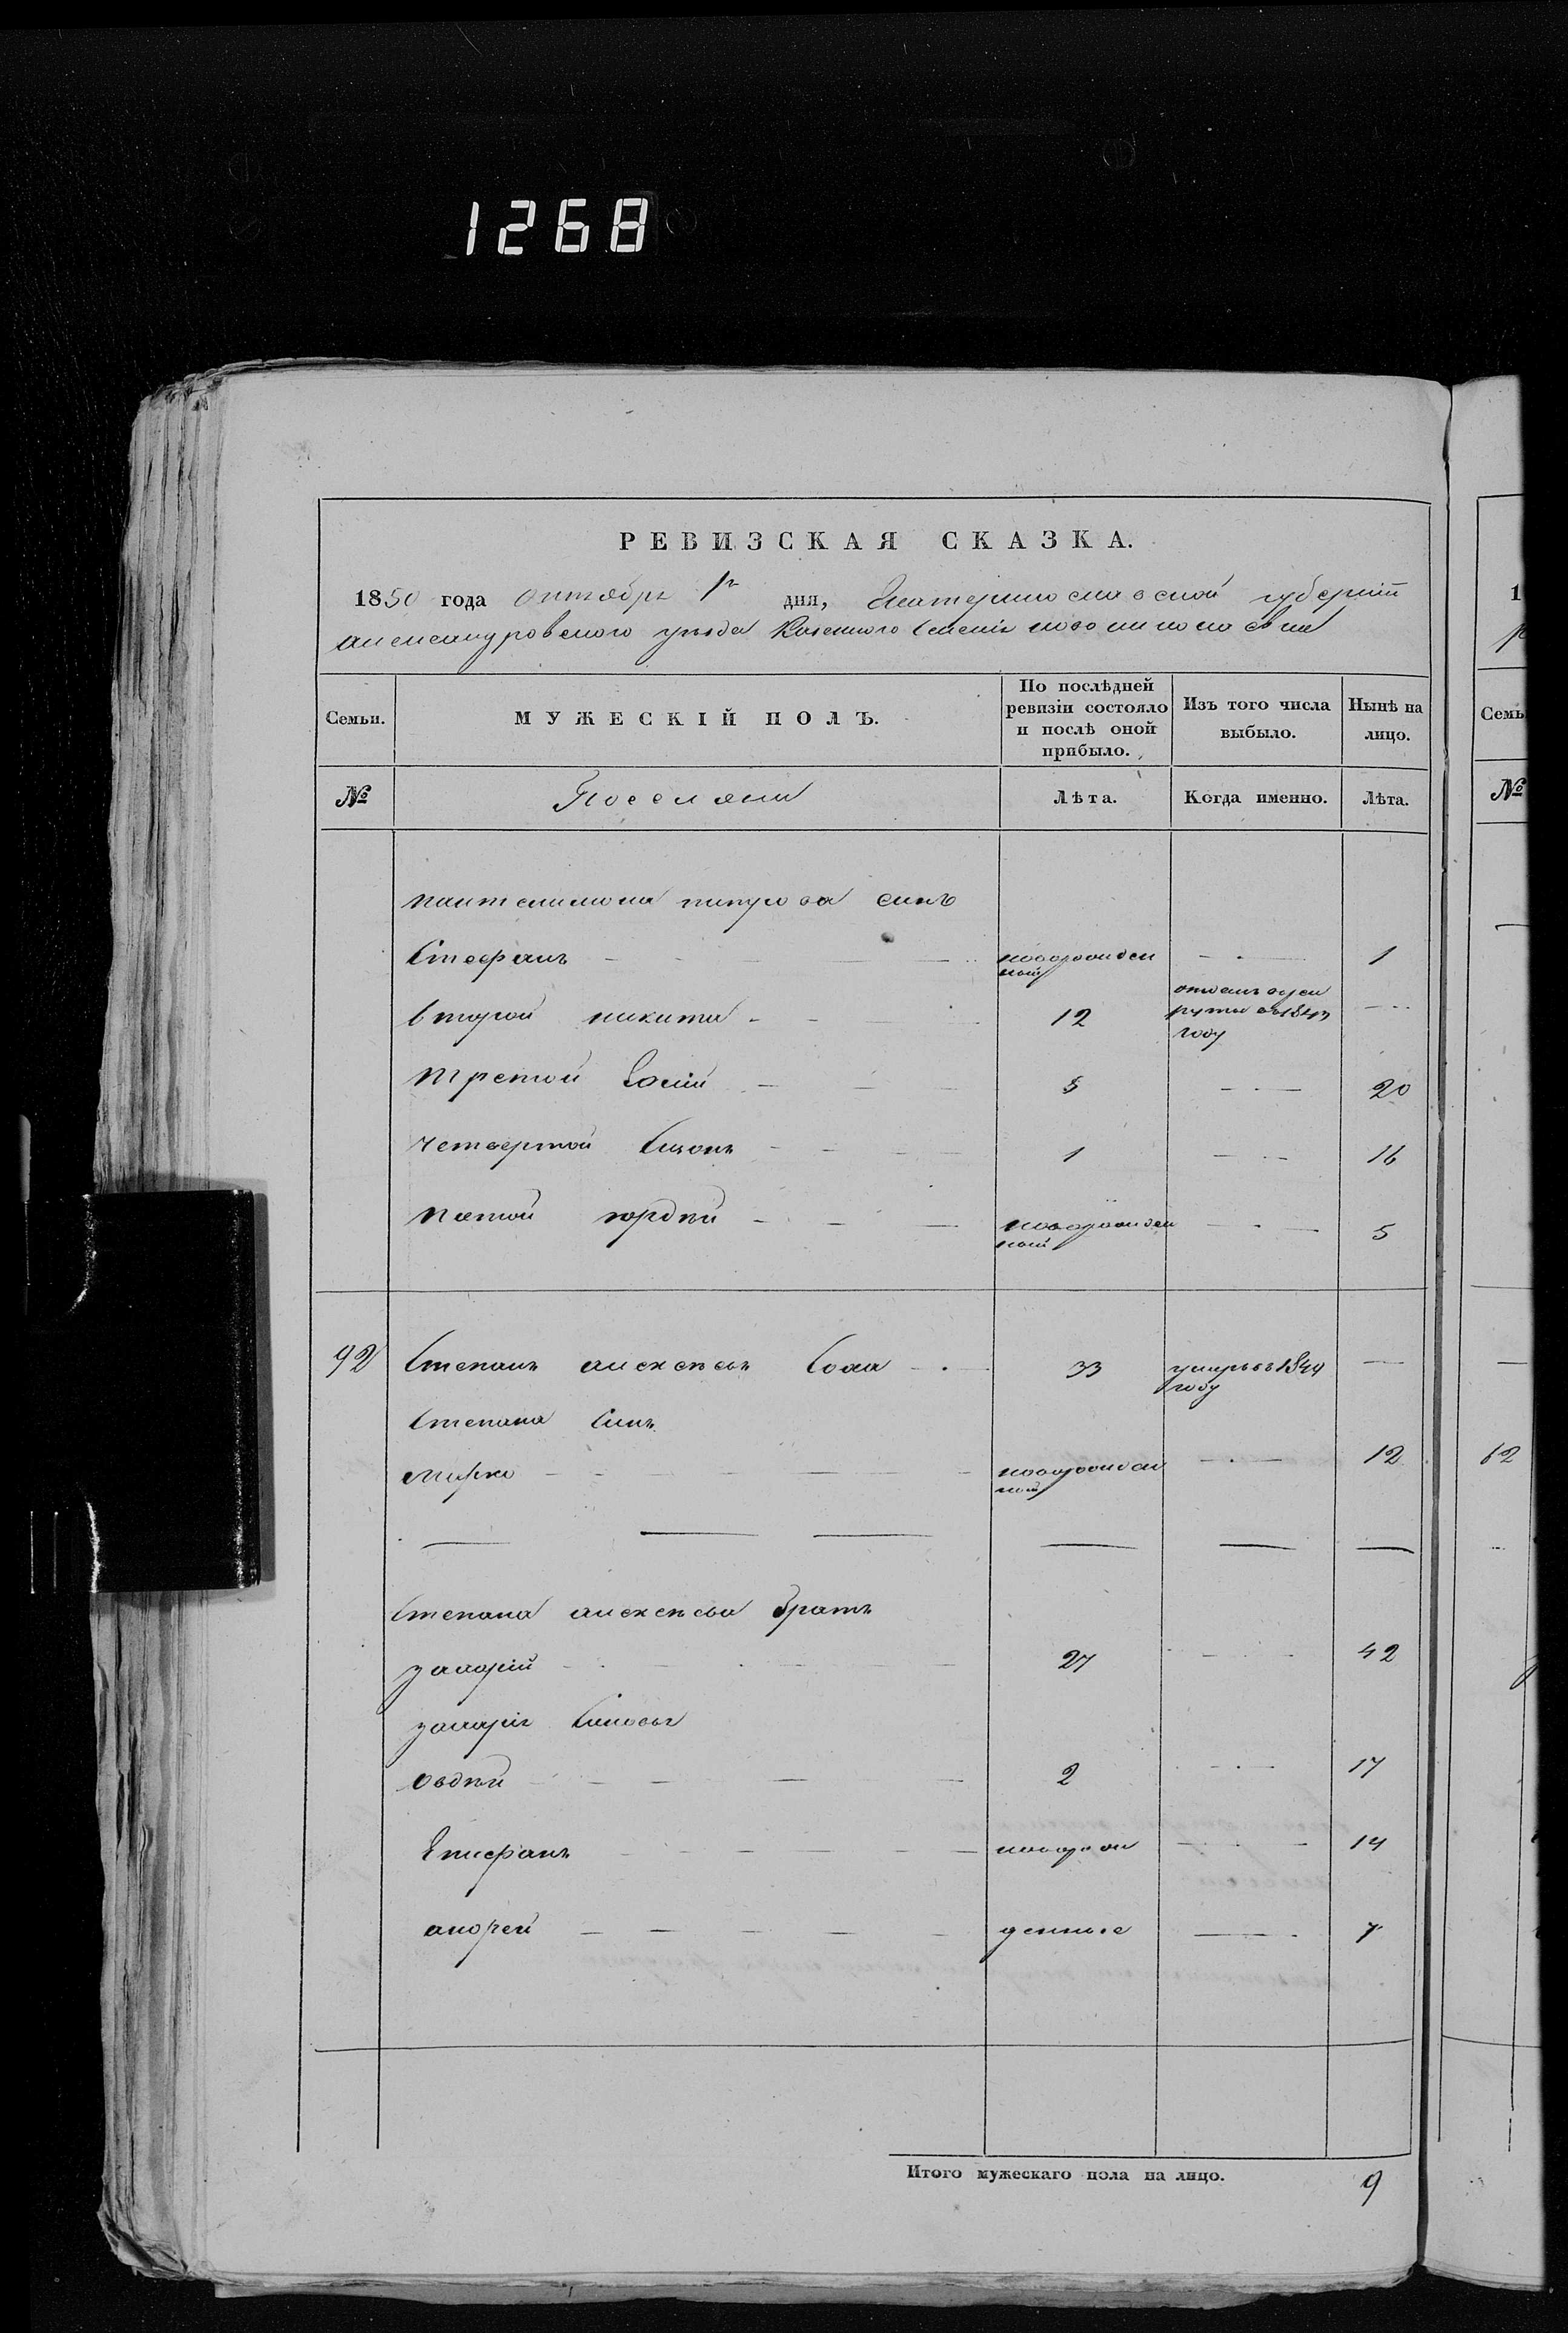 1268
РЕВИЗСКАЯ СКАЗКА.
1850 года октября 1го дня, Екатеринославской губерніи
александровского уезда Казенного Селенія новониколаевка
Семьи.
МУЖЕСКІЙ ПОЛЪ.
По послѣдней ревизіи состояло и послѣ оной прибыло.
Изъ того числа выбыло.
Нынѣ на лицо.
№
Поселяни
Лѣта.
Когда именно.
Лѣта.
пантелимона синъ
Стефанъ новорожден ный 1
второй никита 12 году
третой 5 20
четвертой 1 16
пятой новорожден ный 5
92 Степанъ алексеевъ Сова 33 умеръ въ 1844 году
Степана Синъ
мирко новорожден ный 12
Степана алексеева братъ
захарій 27 42
захарія Синовья
овдѣй 2 17
Епифанъ новорож 14
андрей денные 7
Итого мужескаго пола на лицо. 9
1
Семь
№
62